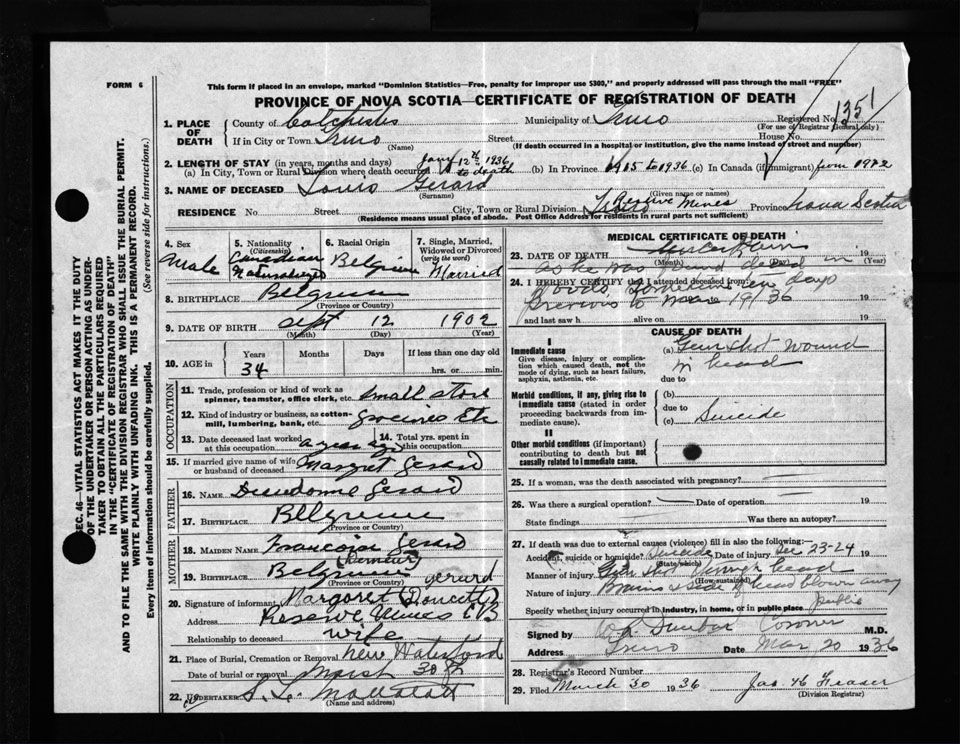 FORM 6
This form if placed in an envelope, marked "Dominion Statistics—Free, penalty for improper use $300," and properly addressed will pass through the mail "FREE"
PROVINCE OF NOVA SCOTIA—CERTIFICATE OF REGISTRATION OF DEATH
1. PLACE OF DEATH
County of Colchester Municipality of Truro Registered No. 1351
(For use of Registrar General only)
If in City or Town Truro Street House No.
(Name) (If death occurred in a hospital or institution, give the name instead of street and number)
2. LENGTH OF STAY (in years, months and days) Jany 12th 1936
(a) In City, Town or Rural Division where death occurred to death (b) In Province 1905 to 1936 (c) In Canada (if immigrant) from 1902
3. NAME OF DECEASED Louis Gerard
(Surname) (Given name or names)
RESIDENCE No Street City, Town or Rural Division Reserve Mines Province Nova Scotia
(Residence means usual place of abode. Post Office Address for residents in rural parts not sufficient)
4. Sex
Male
5. Nationality (Citizenship)
Canadian Naturalized
6. Racial Origin
Belgium
7. Single, Married, Widowed or Divorced (write the word)
Married
8. BIRTHPLACE Belgium
(Province or Country)
9. DATE OF BIRTH Sept 12 1902
(Month) (Day) (Year)
10. AGE in
Years Months Days If less than one day old
34 hrs. or min.
OCCUPATION
11. Trade, profession or kind of work as spinner, teamster, office clerk, etc. Small Store
12. Kind of industry or business, as cotton-mill, lumbering, bank, etc. Groceries Etc
13. Date deceased last worked at this occupation a year ago 14. Total yrs. spent in this occupation
15. If married give name of wife or husband of deceased Margret Gerard
FATHER
16. NAME Dieudonne Gerard
17. BIRTHPLACE Belgium
(Province or Country)
MOTHER
18. MAIDEN NAME Francoise Gerard
19. BIRTHPLACE Belgium
(Province or Country)
20. Signature of informant Margaret (Doucette) Gerard
Address Reserve Mines CB
Relationship to deceased wife
21. Place of Burial, Cremation or Removal New Waterford
Date of burial or removal March 30
22. UNDERTAKER
(Name and address)
MEDICAL CERTIFICATE OF DEATH
23. DATE OF DEATH Uncertain
(Month) (Day) (Year)
as he was found dead in
24. I HEREBY CERTIFY that I attended deceased from
woods days
previous to 1936
and last saw h alive on 19
CAUSE OF DEATH
I
Immediate cause
Give disease, injury or complication which caused death, not the mode of dying, such as heart failure, asphyxia, asthenia, etc.
(a) Gun shot wound
in head
due to
Morbid conditions, if any, giving rise to immediate cause (stated in order proceeding backwards from immediate cause).
(b)
due to
(c) Suicide
II
Other morbid conditions (if important) contributing to death but not causally related to immediate cause.
25. If a woman, was the death associated with pregnancy?
26. Was there a surgical operation? Date of operation 19
State findings Was there an autopsy?
27. If death was due to external causes (violence) fill in also the following:—
Accident, suicide or homicide? Suicide Date of injury Dec 23-24 19
(State which)
Manner of injury Gun shot through head
(How sustained)
Nature of injury Brains & side of head blown away
Specify whether injury occurred in industry, in home, or in public place public
Signed by Dunbar Coroner M.D.
Address Truro Date Mar 20 1936
28. Registrar's Record Number
29. Filed March 30 1936 Jas. H Fraser
(Division Registrar)
SEC. 46—VITAL STATISTICS ACT MAKES IT THE DUTY
OF THE UNDERTAKER OR PERSON ACTING AS UNDER-
TAKER TO OBTAIN ALL THE PARTICULARS REQUIRED
IN THE "CERTIFICATE OF REGISTRATION OF DEATH"
AND TO FILE THE SAME WITH THE DIVISION REGISTRAR WHO SHALL ISSUE THE BURIAL PERMIT.
WRITE PLAINLY WITH UNFADING INK. THIS IS A PERMANENT RECORD.
Every item of information should be carefully supplied. (See reverse side for instructions.)